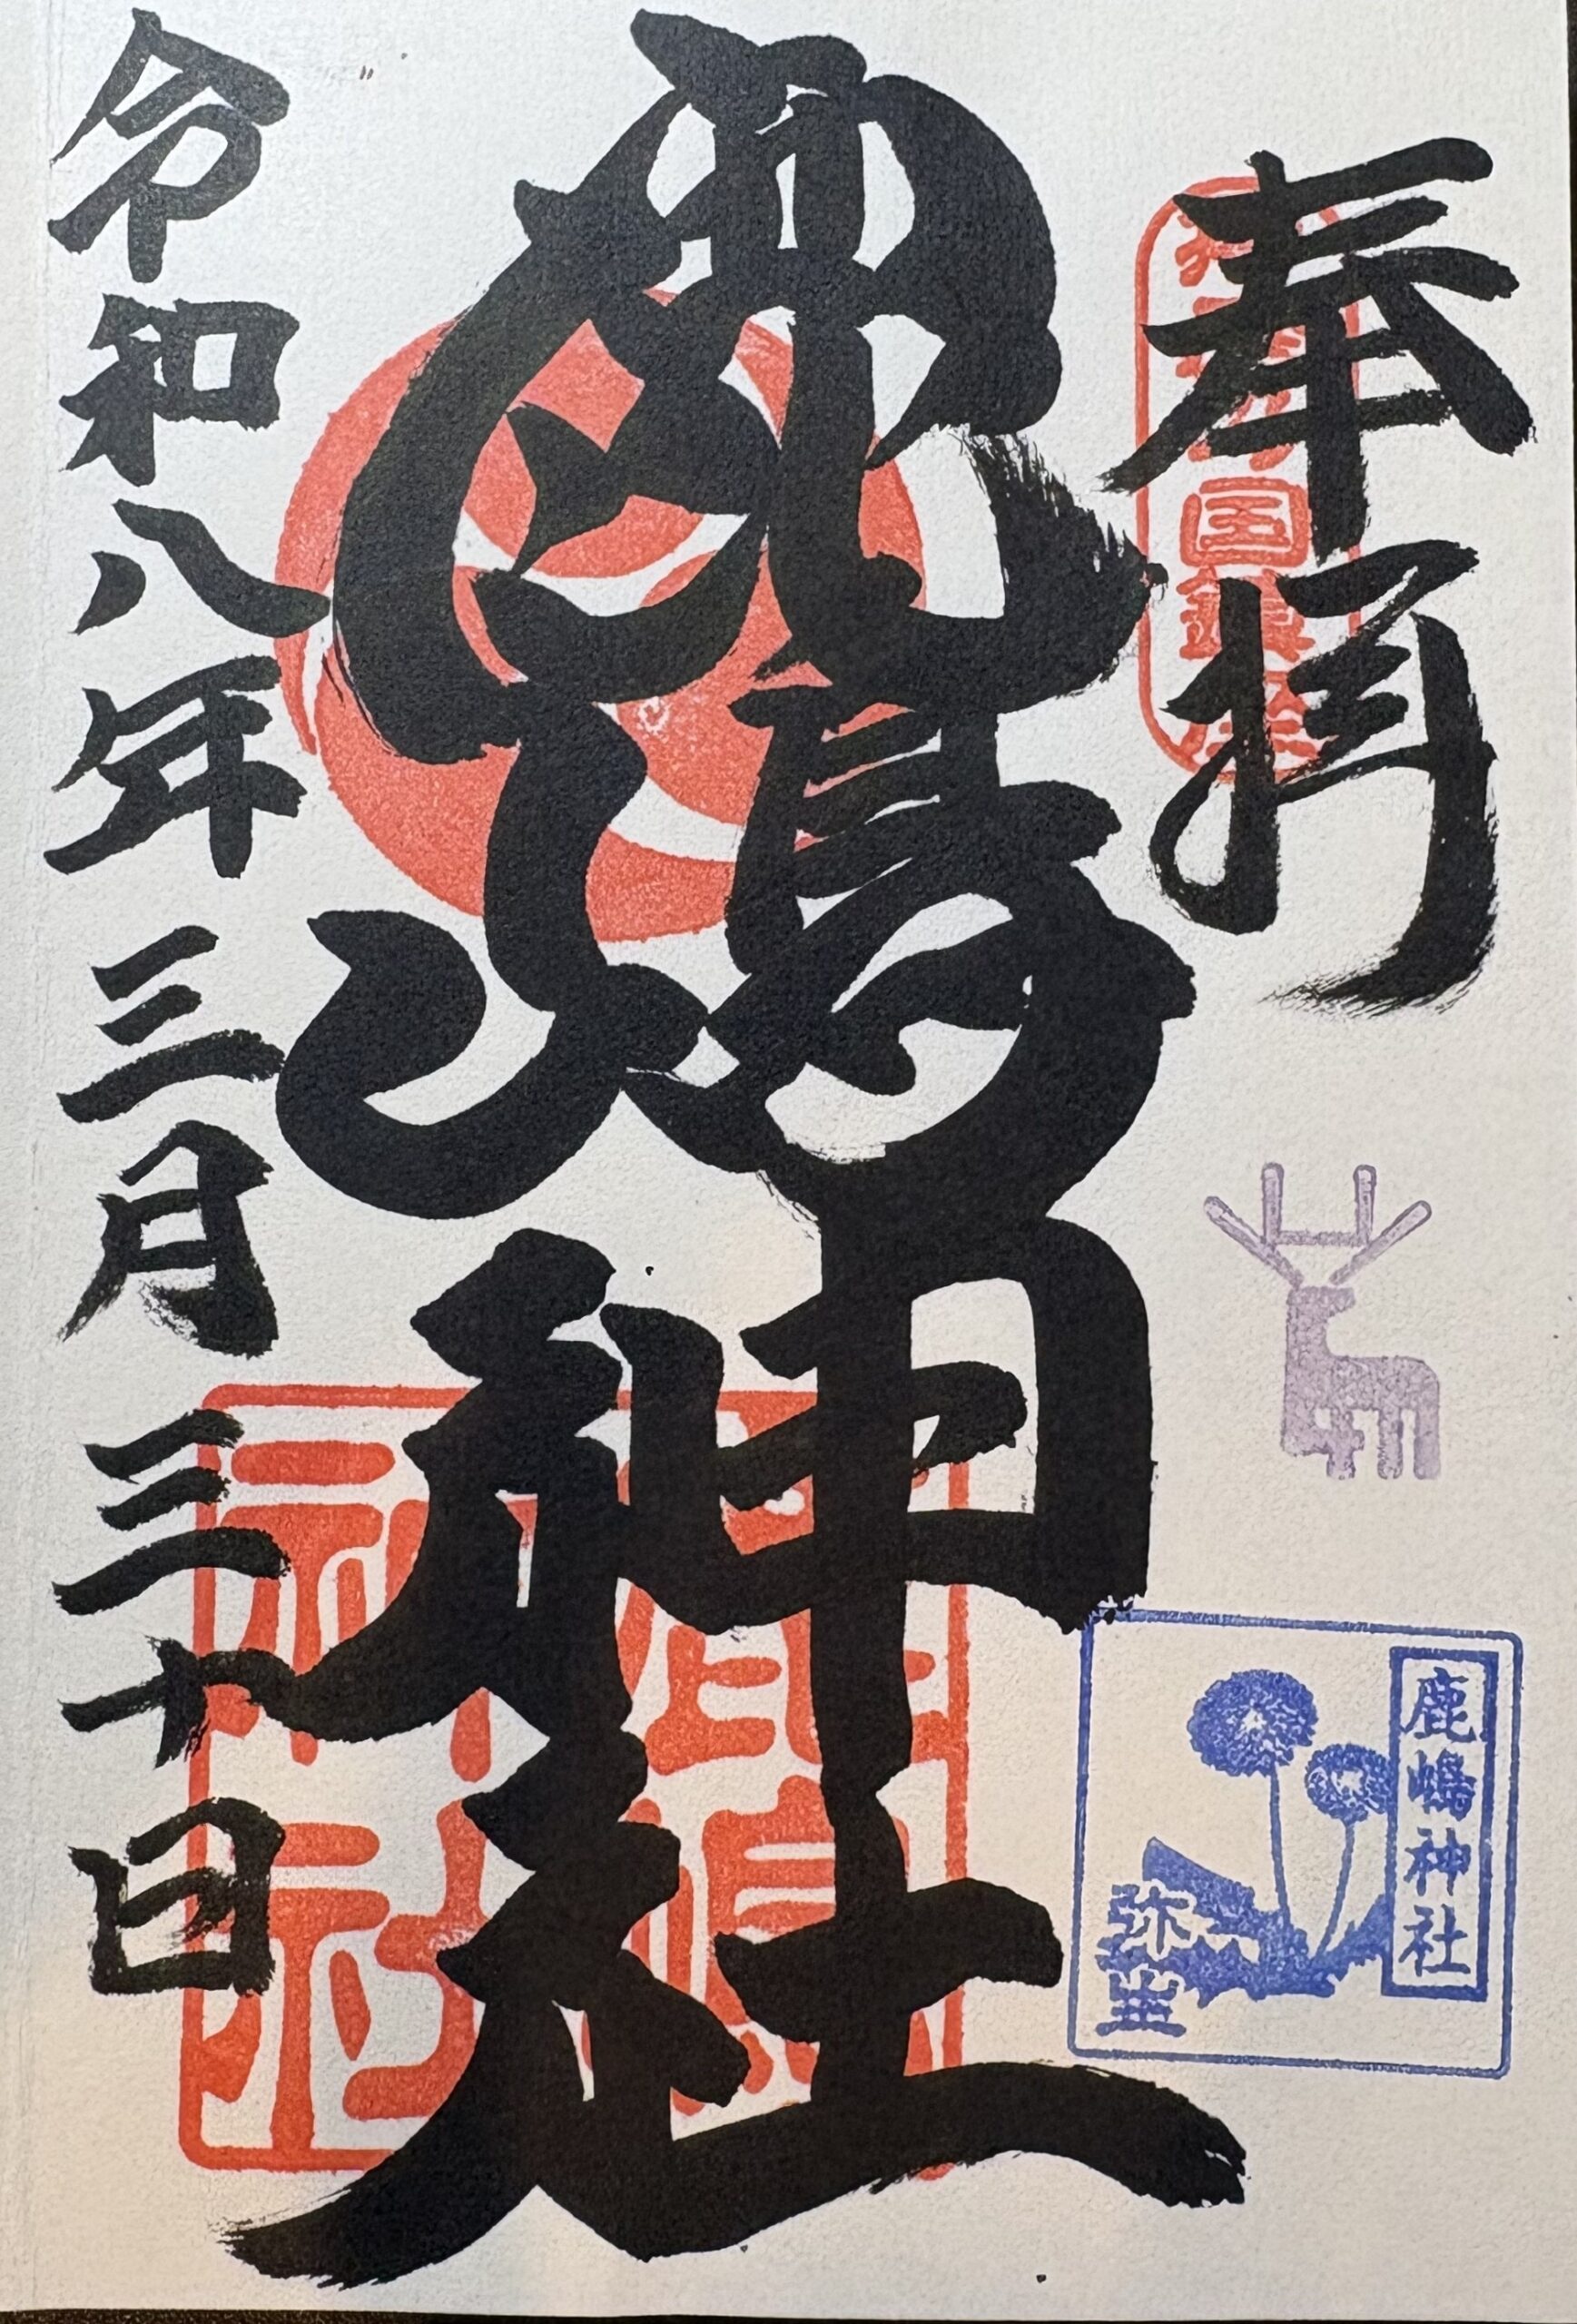 奉拝
鹿嶋神社
令和八年三月三十日
鹿嶋神社
弥生
鹿嶋神社